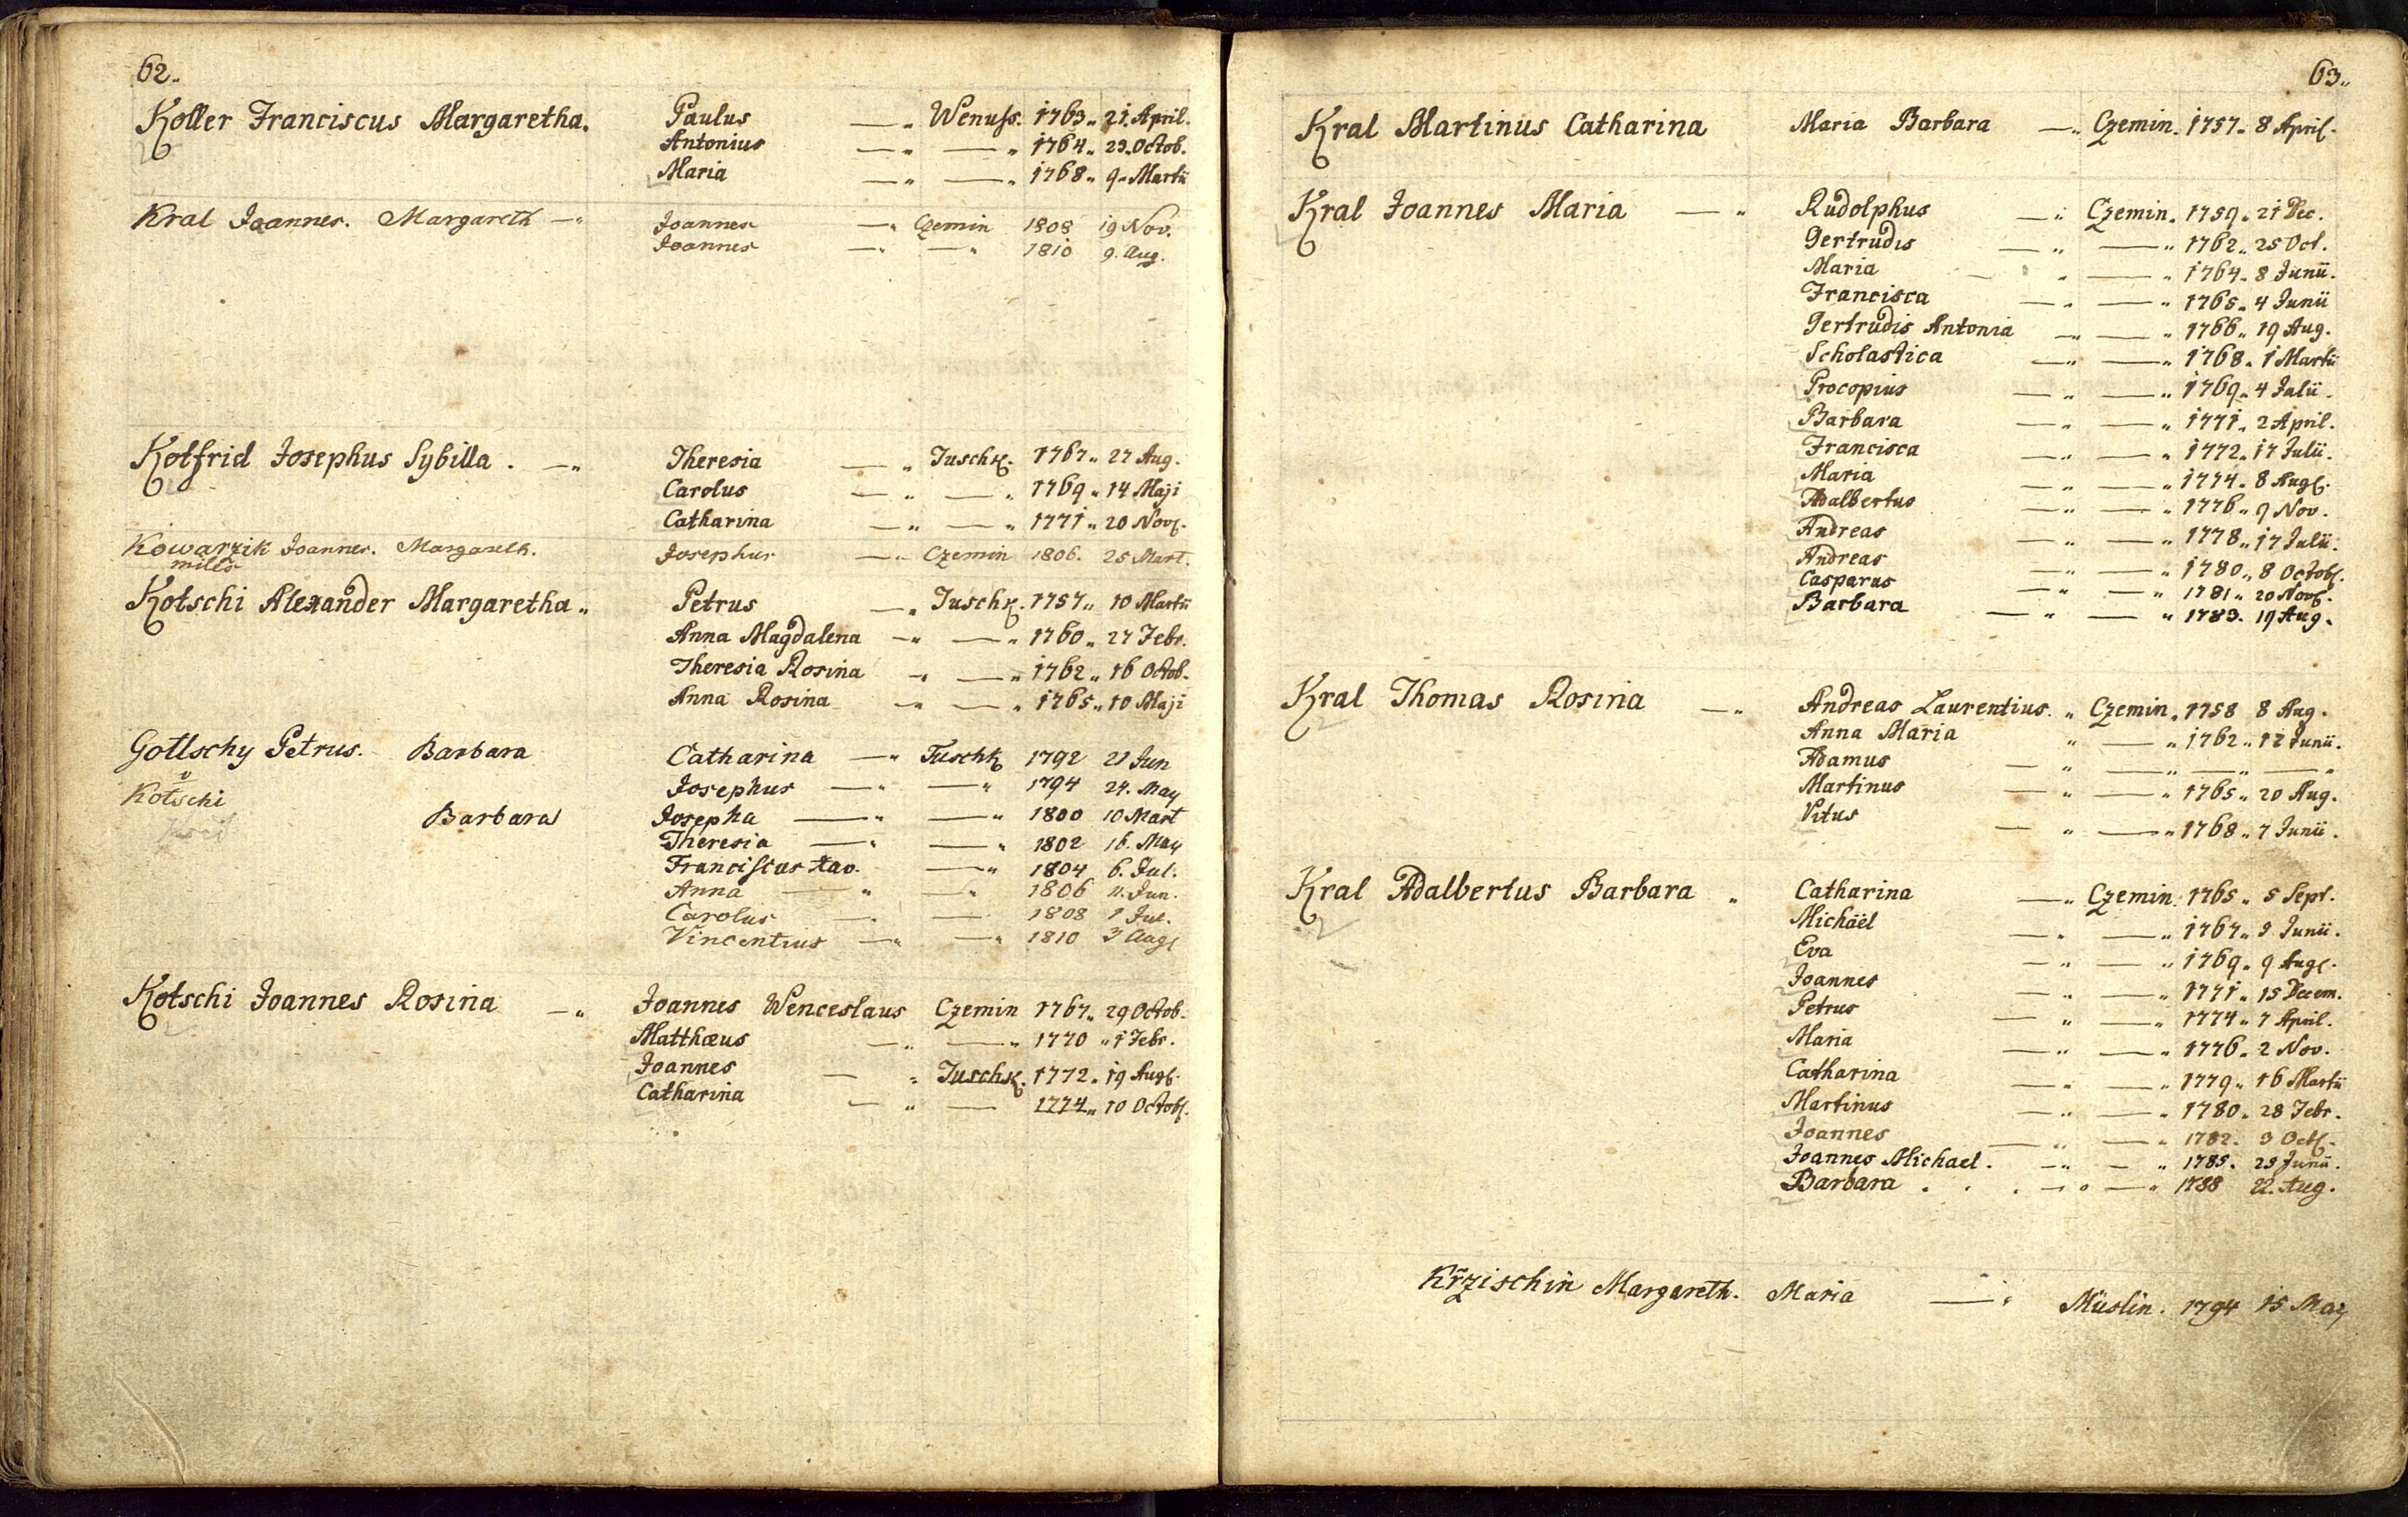 62.
Koller Franciscus Margaretha. Paulus —„ Wenuss. 1763„ 21. April.
Antonius —„ —„ 1764„ 23. Octob.
Maria —„ —„ 1768„ 9„ Martii
Kral Joannes. Margareth —„ Joannes —„ Czemin 1808 19 Nov.
Joannes —„ —„ 1810 9. Aug.
Kotfrid Josephus Sybilla. —„ Theresia —„ Tuschk. 1767„ 27 Aug.
Carolus —„ —„ 1769„ 14 Maji
Catharina —„ —„ 1771„ 20 Nov.
Kowarzik Joannes. Margareth. Josephus —„ Czemin 1806. 25 Mart.
miles
Kotschi Alexander Margaretha„ Petrus —„ Tuschk. 1757„ 10 Martii
Anna Magdalena —„ —„ 1760„ 27 Febr.
Theresia Rosina —„ —„ 1762„ 16 Octob.
Anna Rosina —„ —„ 1765„ 10 Maji
Gottschy Petrus. Barbara Catharina —„ Tuschk 1792 21 Jun
Josephus —„ —„ 1794 24. May
Kotschi
Barbara Josepha —„ —„ 1800 10 Mart
Theresia —„ —„ 1802 16. May
Franciscus —„ 1804 6. Jul.
Anna —„ —„ 1806 11. Jun.
Carolus —„ — 1808 1 Jul.
Vincentius —„ —„ 1810 3 Aug
Kotschi Joannes Rosina —„ Joannes Wenceslaus Czemin 1767„ 29 Octob.
Matthæus —„ —„ 1770 „1 Febr.
Joannes —„ Tuschk. 1772„ 19 Aug.
Catharina —„ — 1774„ 10 Octob.
63„
Kral Martinus Catharina Maria Barbara —„ Czemin. 1757„ 8 April.
Kral Joannes Maria —„ Rudolphus —„ Czemin. 1759„ 21 Dec.
Gertrudis —„ —„ 1762„ 25 Oct.
Maria —„ —„ 1764„ 8 Junii.
Francisca —„ —„ 1765„ 4 Junii
Gertrudis Antonia —„ —„ 1766„ 19 Aug.
Scholastica —„ —„ 1768„ 1 Martii
Procopius —„ —„ 1769„ 4 Julii.
Barbara —„ —„ 1771„ 2 April.
Francisca —„ —„ 1772„ 17 Julii.
Maria —„ —„ 1774„ 8 Aug.
Adalbertus —„ —„ 1776„ 9 Nov.
Andreas —„ —„ 1778„ 17 Julii.
Andreas —„ —„ 1780„ 8 Octob.
Casparus —„ —„ 1781„ 20 Nov.
Barbara —„ —„ 1783. 19 Aug.
Kral Thomas Rosina —„ Andreas Laurentius. „ Czemin. 1758 8 Aug.
Anna Maria „ —„ 1762„ Junii.
Adamus —„ —„ —„ —„
Martinus —„ —„ 1765„ 20 Aug.
Vitus —„ —„ 1768„ 7 Junii.
Kral Adalbertus Barbara „ Catharina —„ Czemin. 1765„ 5 Sept.
Michaël —„ —„ 1767„ Junii.
Eva —„ —„ 1769„ 9 Aug.
Joannes —„ —„ 1771„ 15 Decem.
Petrus —„ —„ 1774„ 7 April.
Maria —„ —„ 1776„ 2 Nov.
Catharina —„ —„ 1779„ 16 Martii
Martinus —„ —„ 1780„ 28 Febr.
Joannes —„ —„ 1782. 3 Oct.
Joannes Michael. —„ —„ 1785. 25 Junii.
Barbara . . . —„ —„ 1788 22. Aug.
Krzischin Margareth. Maria —„ Müslin. 1794 15 May